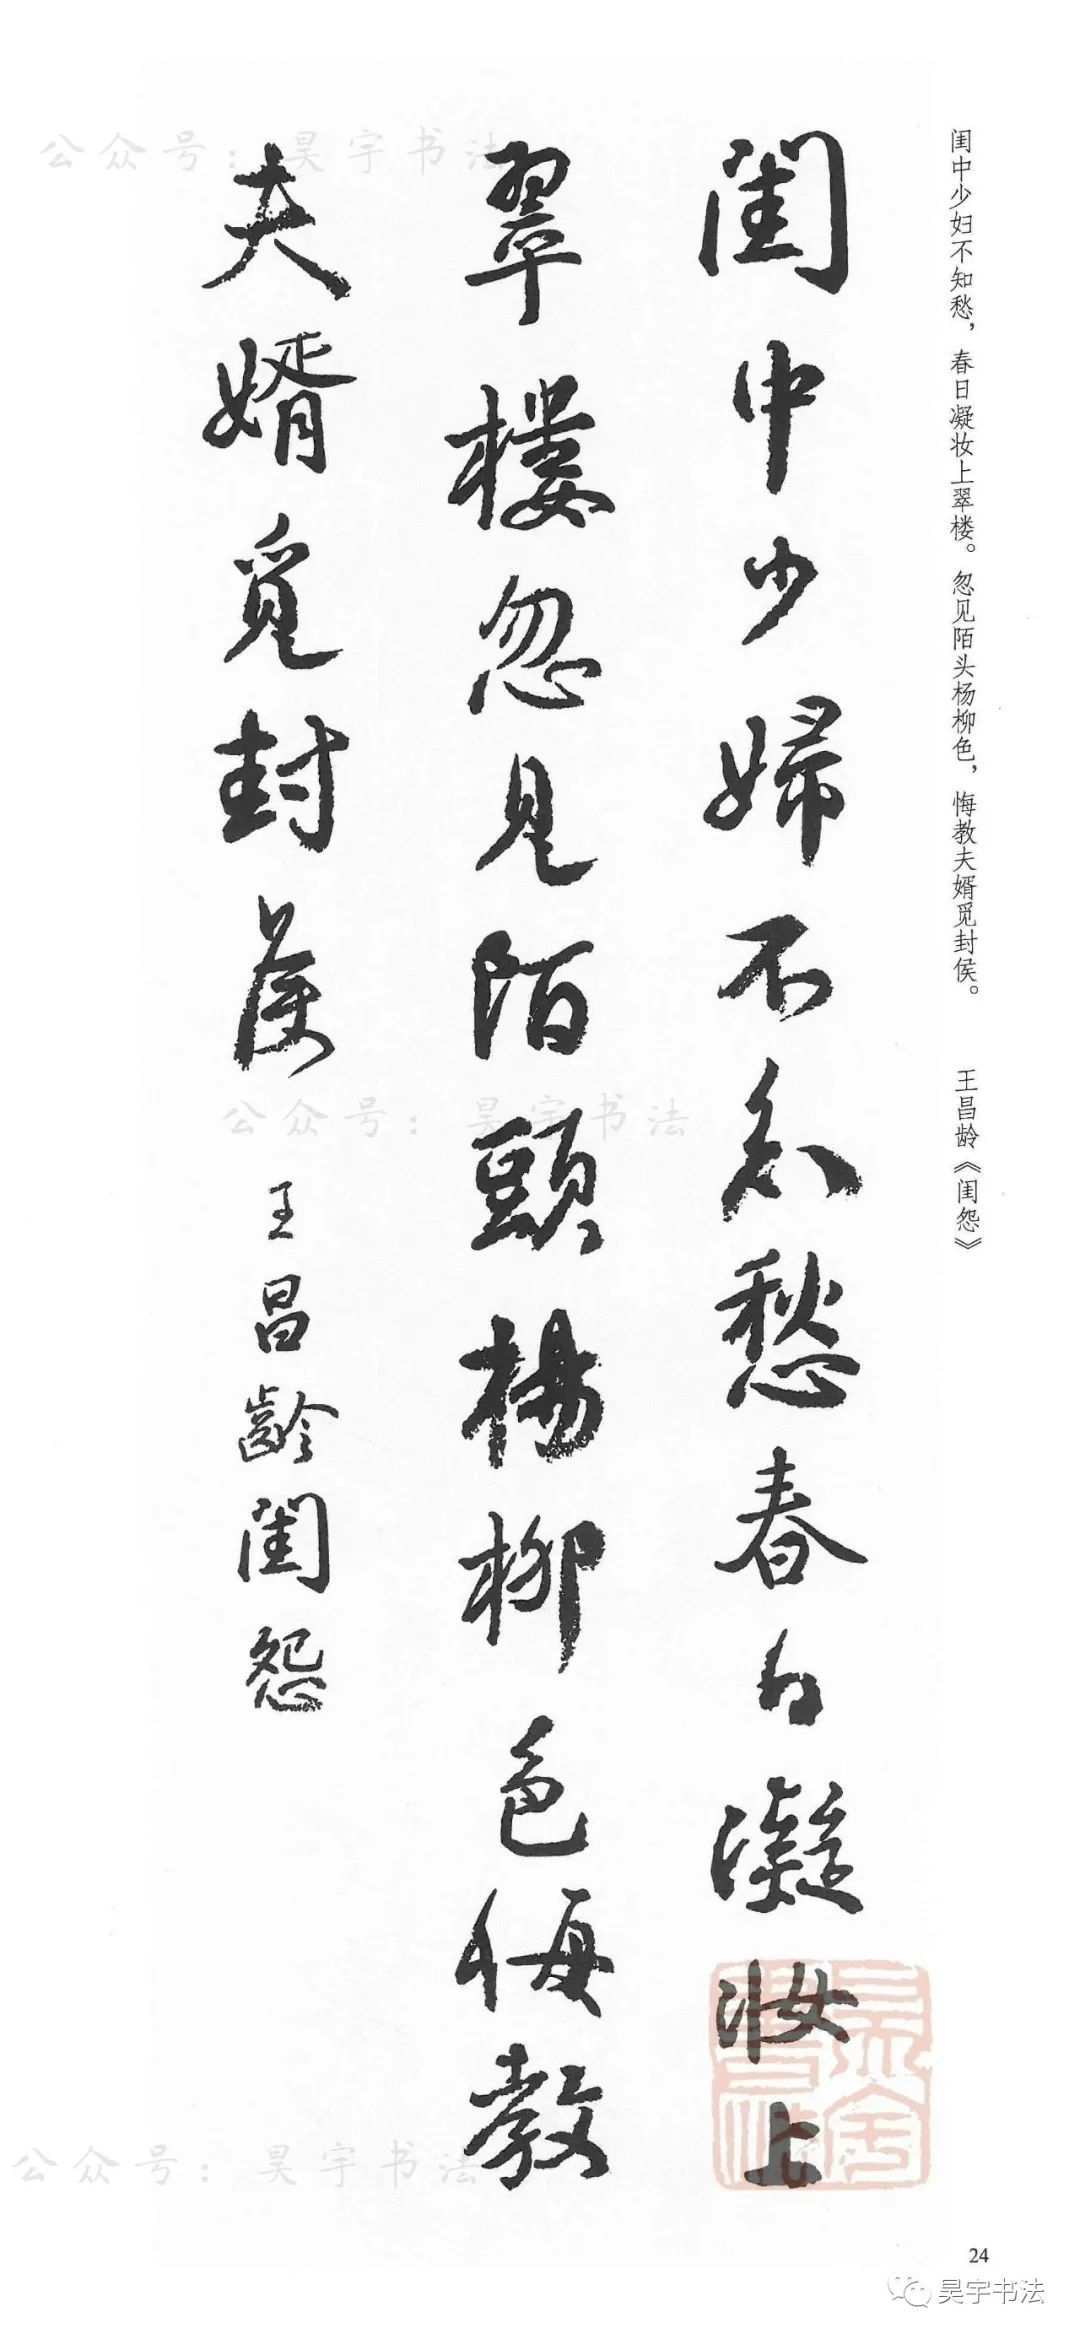 闺中少妇不知愁，春日凝妆上翠楼。忽见陌头杨柳色，悔教夫婿觅封侯。 王昌龄《闺怨》
閨中少婦不知愁春日凝妝上
翠樓忽見陌頭楊柳色悔教
夫婿覓封侯 王昌齡閨怨
公众号：昊宇书法
公众号：昊宇书法
公众号：昊宇书法
昊宇書法
24
昊宇书法